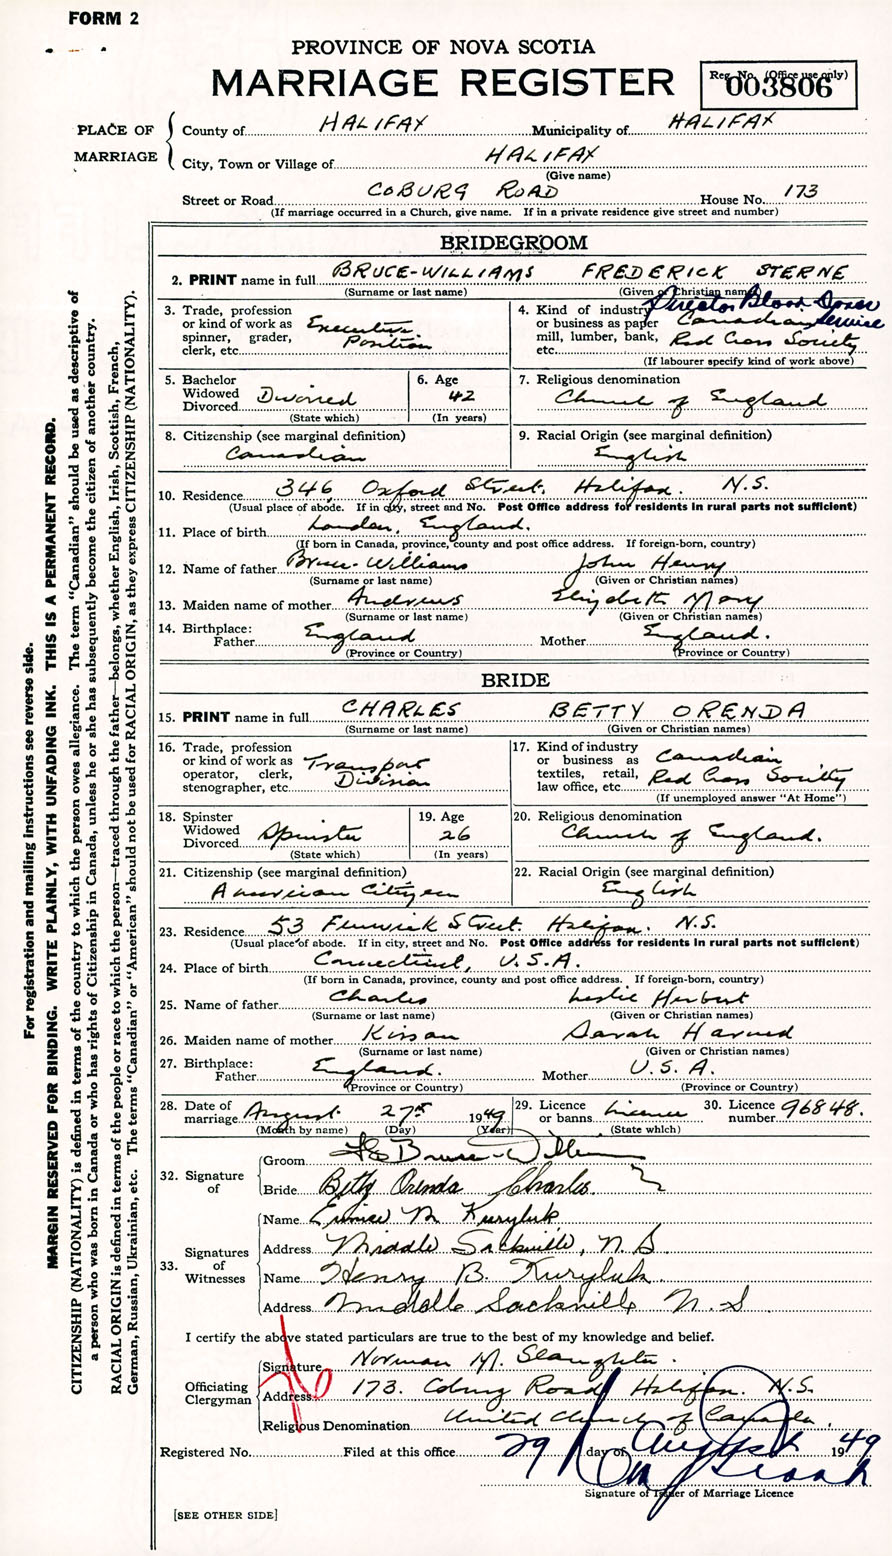 FORM 2
PROVINCE OF NOVA SCOTIA
MARRIAGE REGISTER
Reg. No. (Office use only)
003806
PLACE OF MARRIAGE
County of HALIFAX Municipality of HALIFAX
City, Town or Village of HALIFAX
(Give name)
Street or Road COBURG ROAD House No. 173
(If marriage occurred in a Church, give name. If in a private residence give street and number)
BRIDEGROOM
2. PRINT name in full BRUCE-WILLIAMS FREDERICK STERNE
(Surname or last name) (Given or Christian name)
3. Trade, profession or kind of work as spinner, grader, clerk, etc. Executive Position
4. Kind of industry or business as paper mill, lumber, bank, etc. Director Blood Donor Service Canadian Red Cross Society
(If labourer specify kind of work above)
5. Bachelor Widowed Divorced Divorced
(State which)
6. Age 42
(In years)
7. Religious denomination
Church of England
8. Citizenship (see marginal definition)
Canadian
9. Racial Origin (see marginal definition)
English
10. Residence 346 Oxford Street. Halifax. N.S.
(Usual place of abode. If in city, street and No. Post Office address for residents in rural parts not sufficient)
11. Place of birth London, England.
(If born in Canada, province, county and post office address. If foreign-born, country)
12. Name of father Bruce-Williams John Henry
(Surname or last name) (Given or Christian names)
13. Maiden name of mother Andrews Elizabeth Mary
(Surname or last name) (Given or Christian names)
14. Birthplace:
Father England Mother England.
(Province or Country) (Province or Country)
BRIDE
15. PRINT name in full CHARLES BETTY ORENDA
(Surname or last name) (Given or Christian names)
16. Trade, profession or kind of work as operator, clerk, stenographer, etc. Transport Division
17. Kind of industry or business as textiles, retail, law office, etc. Canadian Red Cross Society
(If unemployed answer "At Home")
18. Spinster Widowed Divorced Spinster
(State which)
19. Age 26
(In years)
20. Religious denomination
Church of England.
21. Citizenship (see marginal definition)
American Citizen
22. Racial Origin (see marginal definition)
English
23. Residence 53 Fenwick Street. Halifax. N.S.
(Usual place of abode. If in city, street and No. Post Office address for residents in rural parts not sufficient)
24. Place of birth Connecticut, U.S.A.
(If born in Canada, province, county and post office address. If foreign-born, country)
25. Name of father Charles Leslie Herbert
(Surname or last name) (Given or Christian names)
26. Maiden name of mother Kissan Sarah Harned
(Surname or last name) (Given or Christian names)
27. Birthplace:
Father England. Mother U.S.A.
(Province or Country) (Province or Country)
28. Date of marriage August 27th 1949
(Month by name) (Day) (Year)
29. Licence or banns Licence
(State which)
30. Licence number 96848.
32. Signature of
Groom Bruce-Williams
Bride Betty Orenda Charles.
33. Signatures of Witnesses
Name Eunice M Kuryluk
Address Middle Sackville, N.S
Name Henry B. Kuryluk
Address Middle Sackville N.S
I certify the above stated particulars are true to the best of my knowledge and belief.
Officiating Clergyman
Signature Norman M. Slaughter.
Address 173. Coburg Road Halifax. N.S.
Religious Denomination United Church of Canada.
Registered No. Filed at this office 29 day of August 1949
Signature of Issuer of Marriage Licence
[SEE OTHER SIDE]
For registration and mailing instructions see reverse side.
MARGIN RESERVED FOR BINDING. WRITE PLAINLY, WITH UNFADING INK. THIS IS A PERMANENT RECORD.
CITIZENSHIP (NATIONALITY) is defined in terms of the country to which the person owes allegiance. The term "Canadian" should be used as descriptive of
a person who was born in Canada or who has rights of Citizenship in Canada, unless he or she has subsequently become the citizen of another country.
RACIAL ORIGIN is defined in terms of the people or race to which the person—traced through the father—belongs, whether English, Irish, Scottish, French,
German, Russian, Ukrainian, etc. The terms "Canadian" or "American" should not be used for RACIAL ORIGIN, as they express CITIZENSHIP (NATIONALITY).